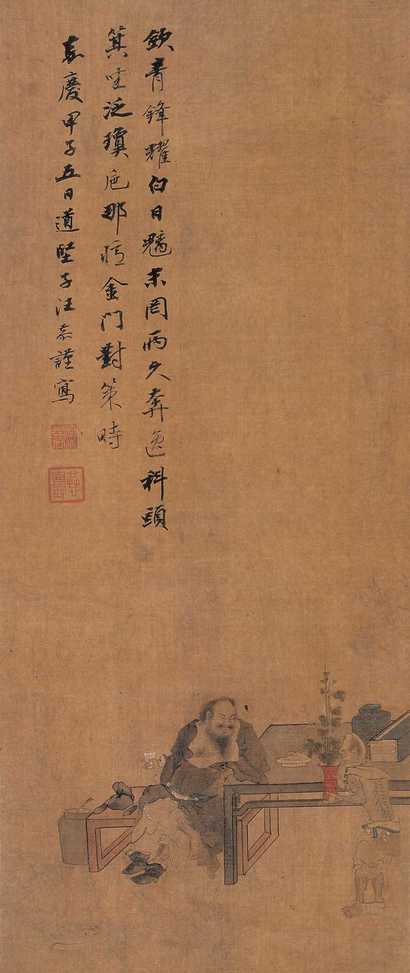 欽青鋒耀白日魑罔兩久奔逸科頭
箕坐泛瓊卮那憶金門對策時
嘉慶甲子五日道堅子汪恭謹寫